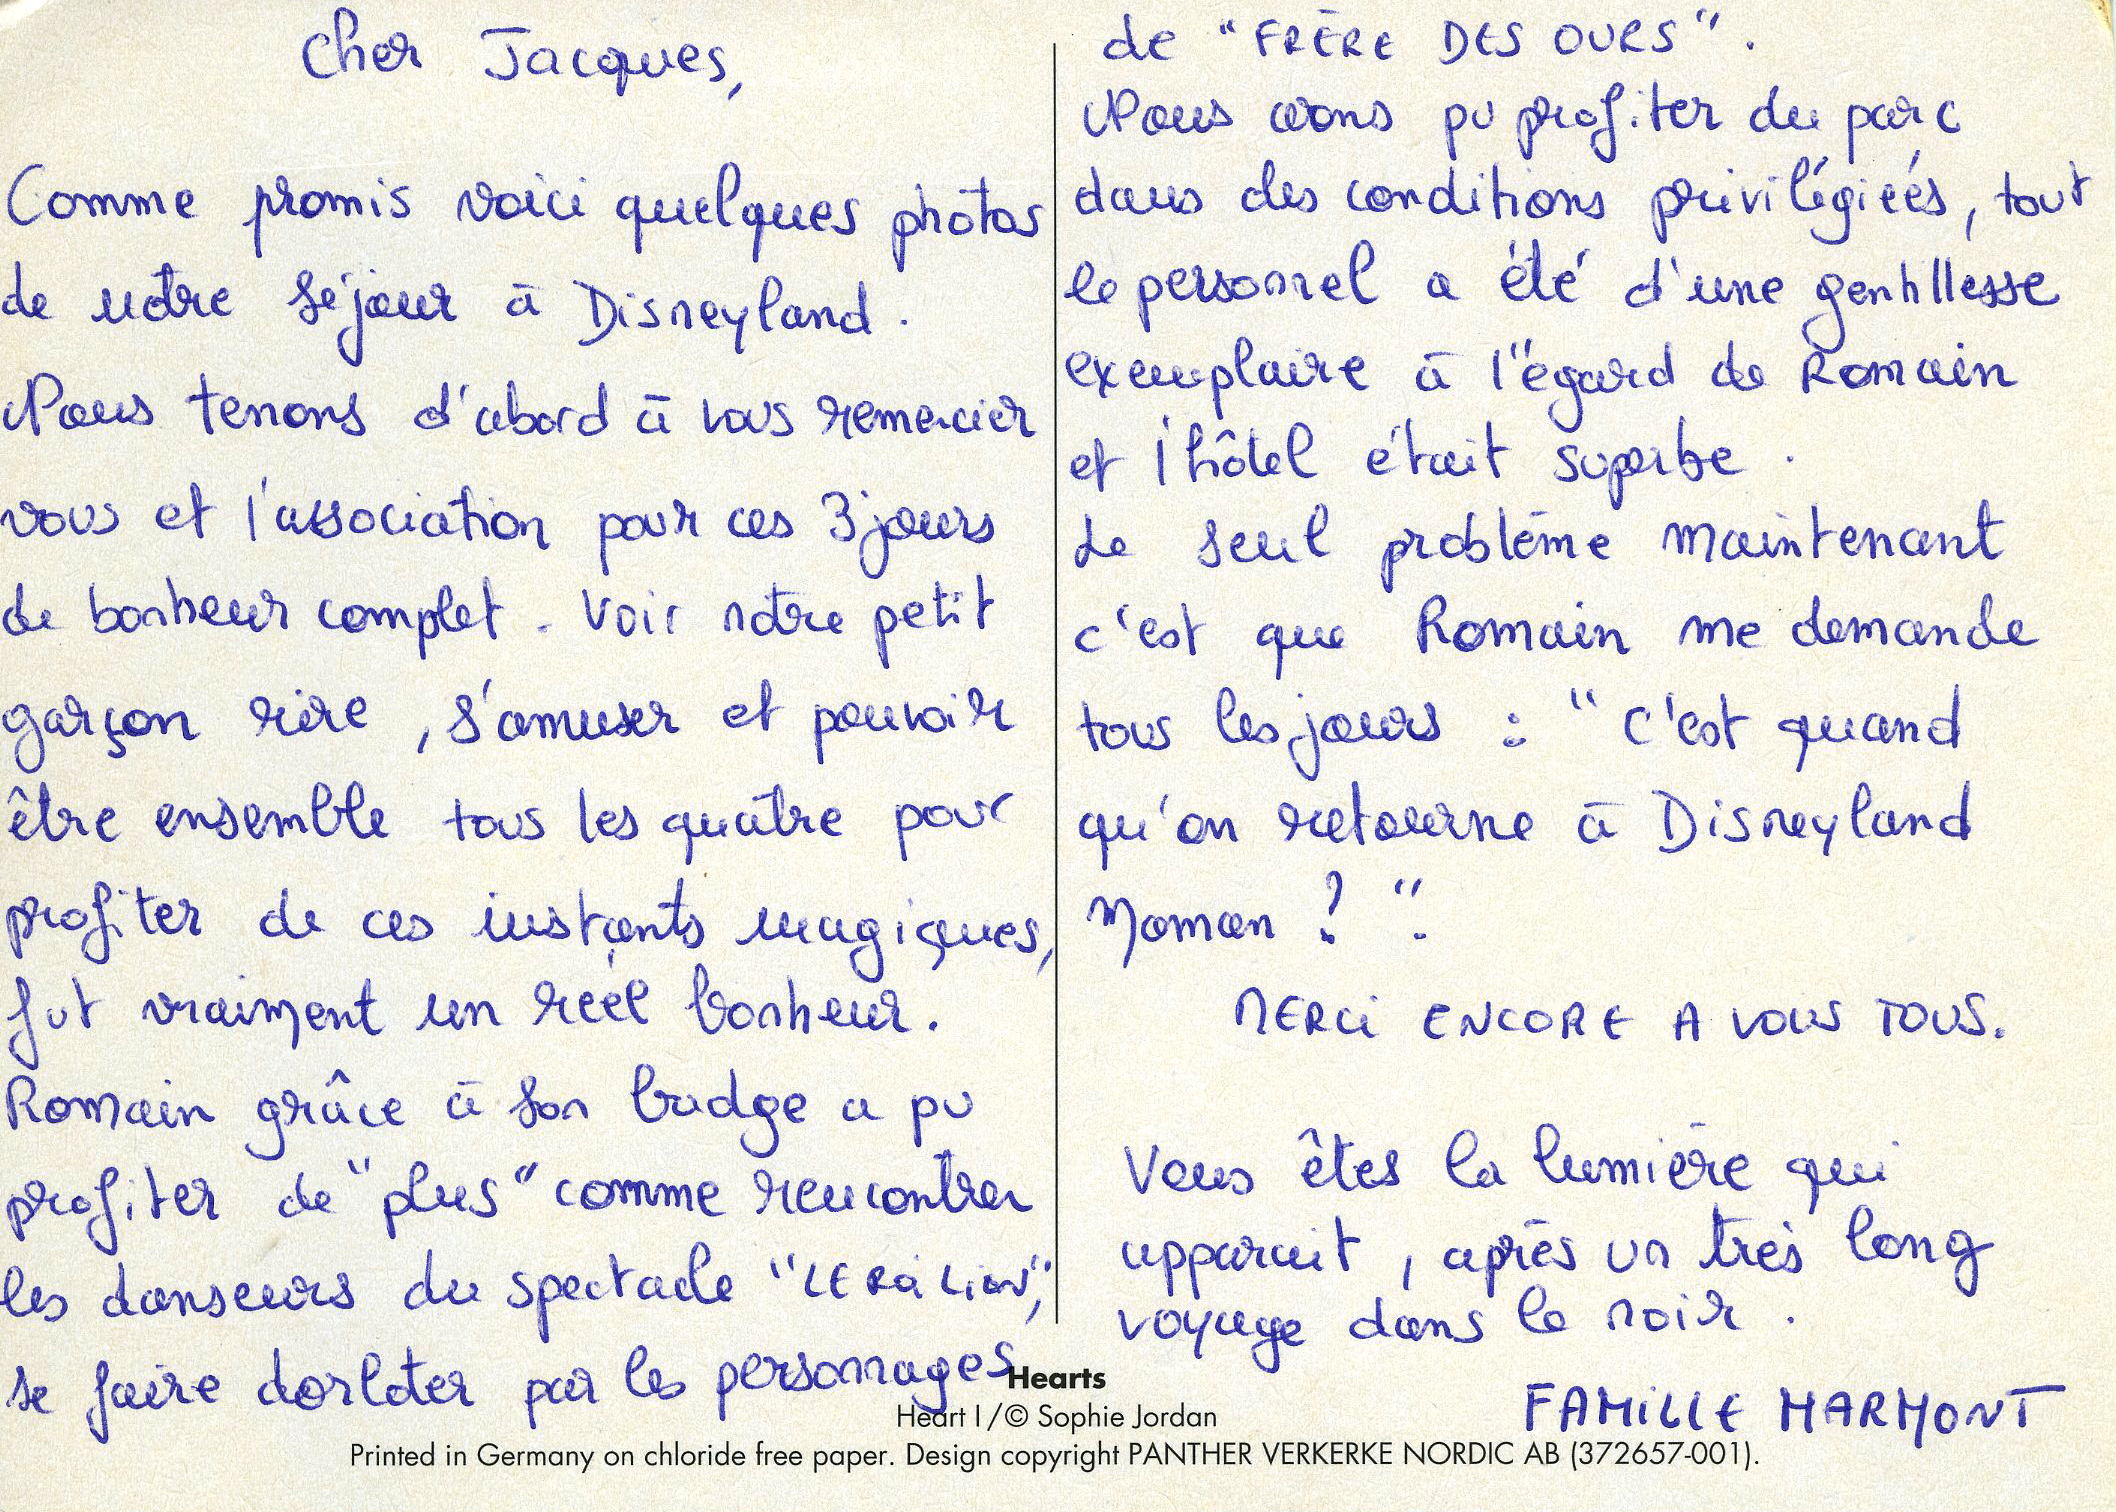 Cher Jacques,
Comme promis voici quelques photos
de notre séjour à Disneyland.
Nous tenons d'abord à vous remercier
vous et l'association pour ces 3 jours
de bonheur complet. Voir notre petit
garçon rire, s'amuser et pouvoir
être ensemble tous les quatre pour
profiter de ces instants magiques,
fut vraiment un réel bonheur.
Romain grâce à son badge a pu
profiter de "plus" comme rencontrer
les danseurs du spectacle "LE ROI LION",
se faire dorloter par les personnages
de "FRÈRE DES OURS".
Nous avons pu profiter du parc
dans des conditions privilégiées, tout
le personnel a été d'une gentillesse
exemplaire à l'égard de Romain
et l'hôtel était superbe.
Le seul problème maintenant
c'est que Romain me demande
tous les jours : "C'est quand
qu'on retourne à Disneyland
Maman ? ".
MERCI ENCORE A VOUS TOUS.
Vous êtes la lumière qui
apparait, après un très long
voyage dans le noir.
FAMILLE MARMONT
Hearts
Heart I/© Sophie Jordan
Printed in Germany on chloride free paper. Design copyright PANTHER VERKERKE NORDIC AB (372657-001).